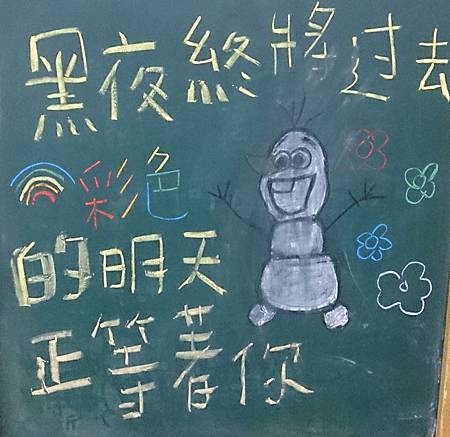 黑夜終將过去
彩色
的明天
正等著你